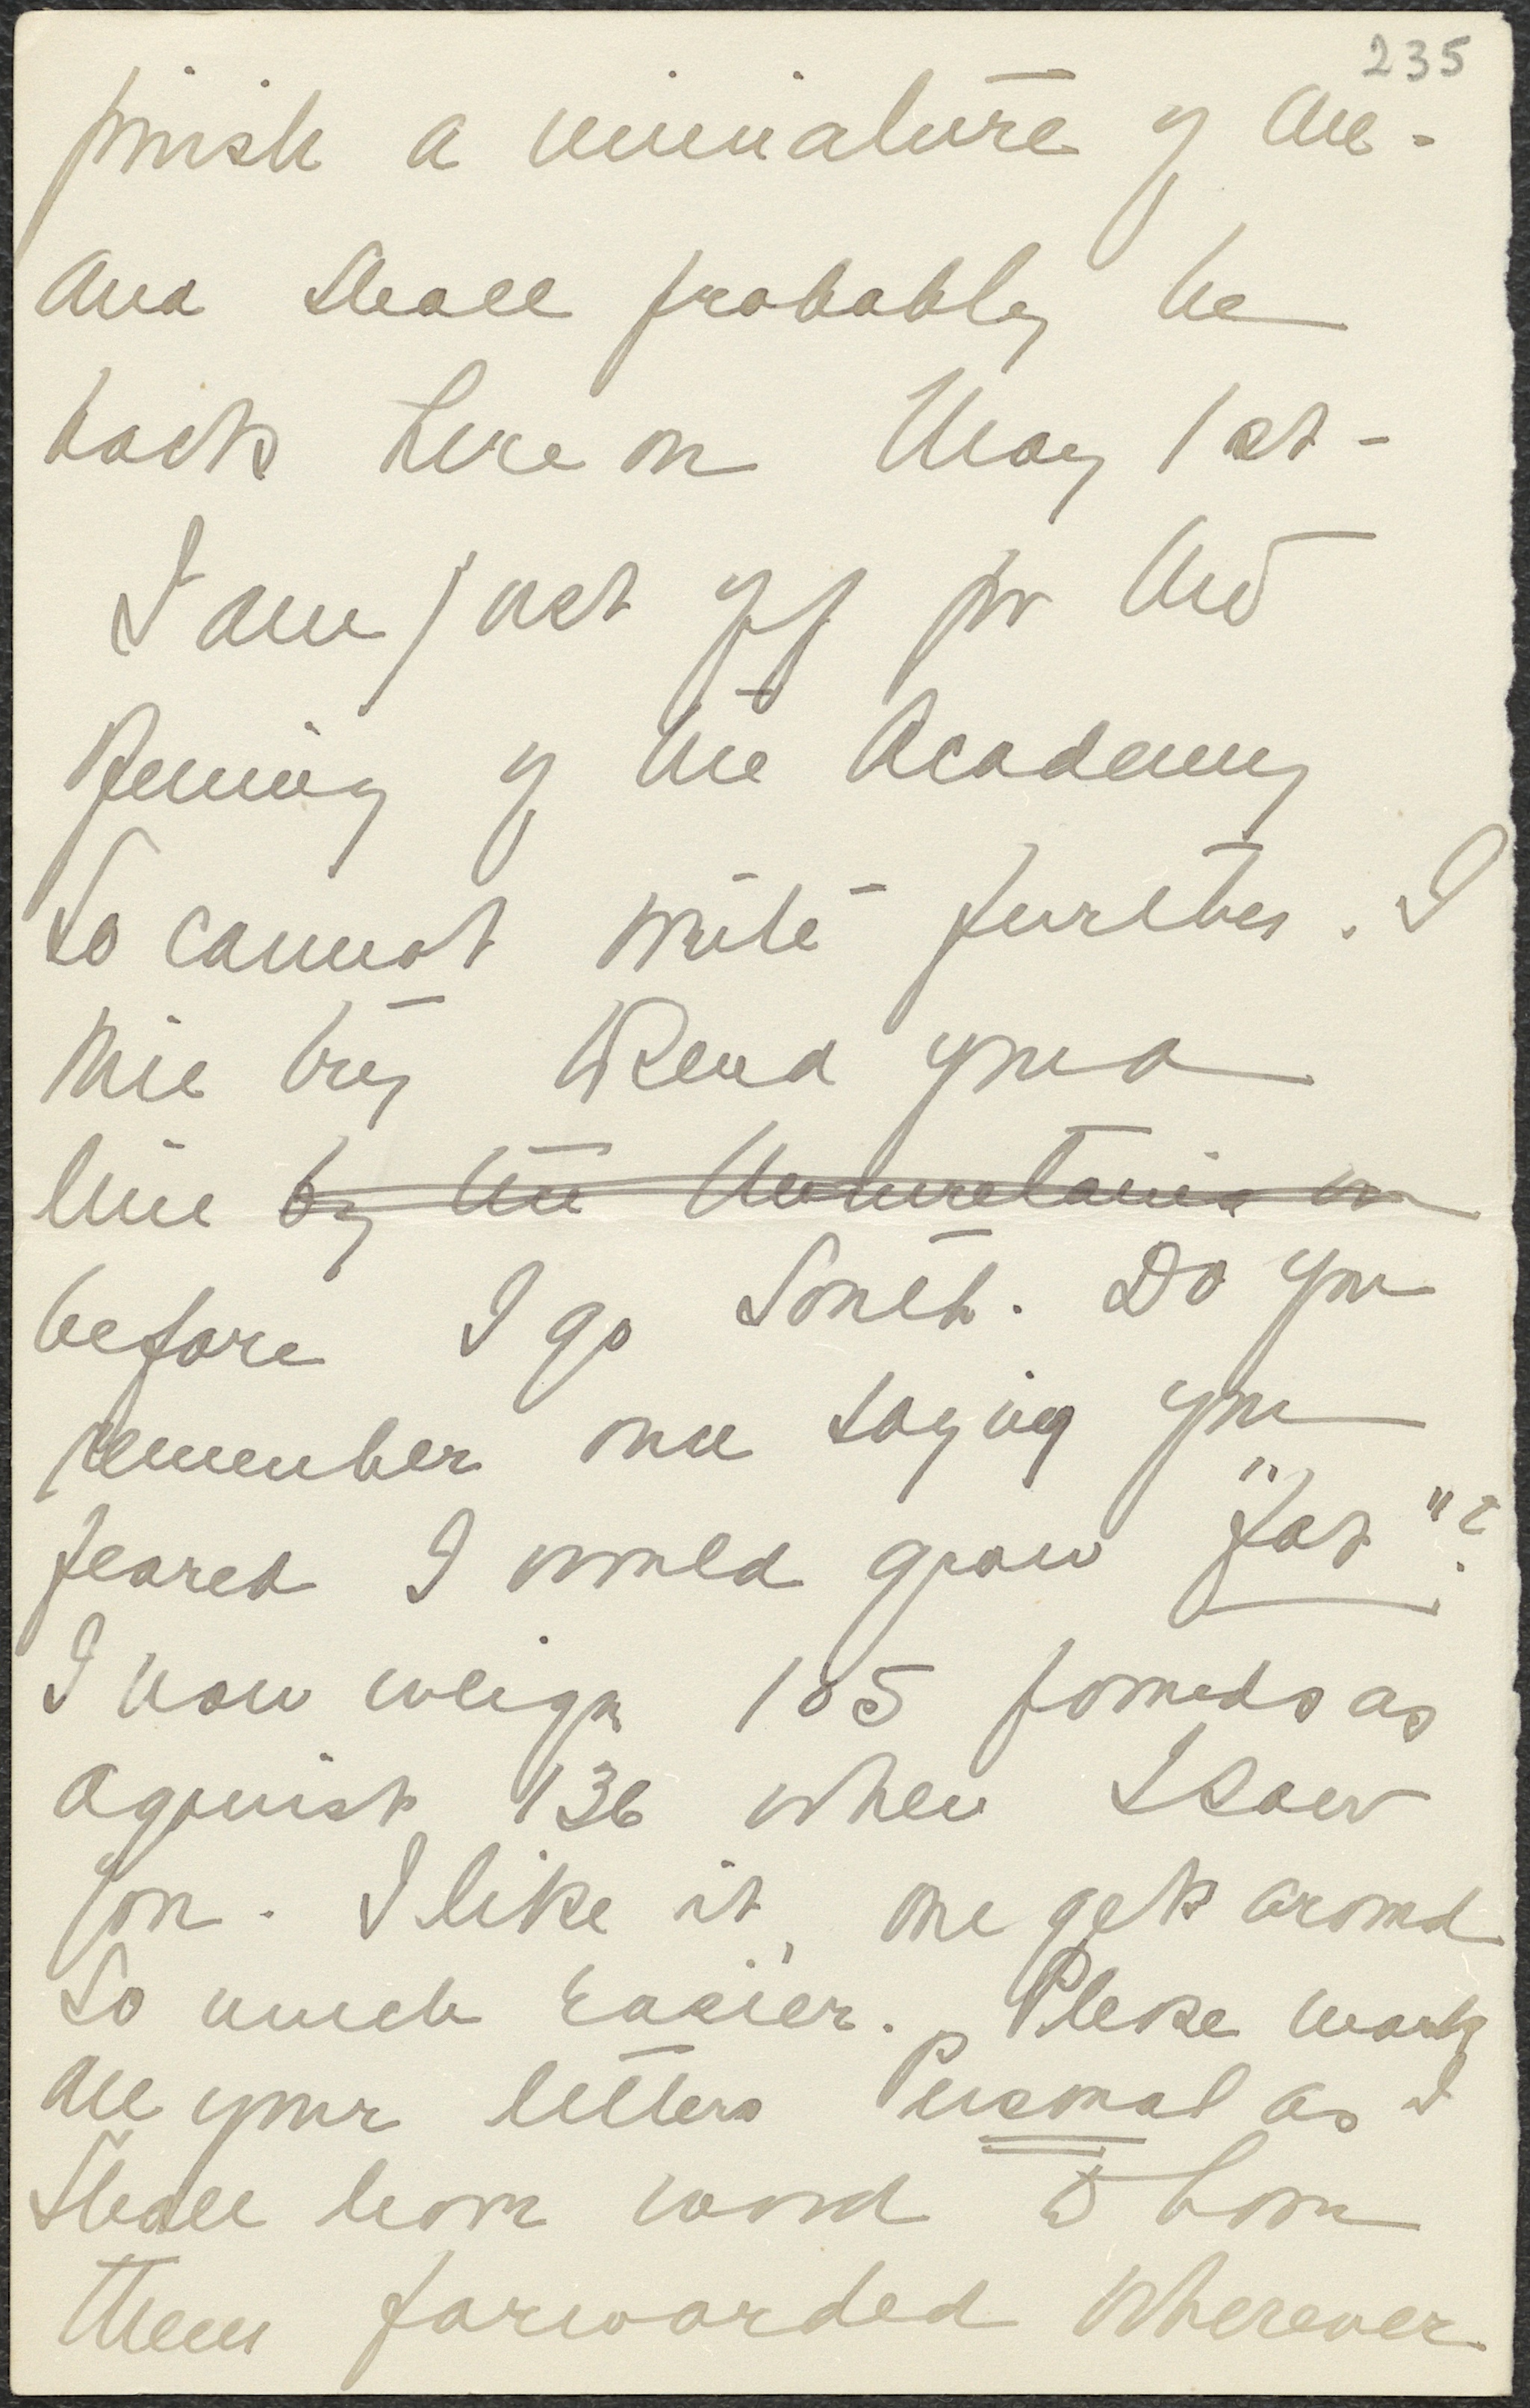 235
finish a miniature of me -
and shall probably be
back here on May 1st -
I am just off for the
opening of the Academy
so cannot write further. I
will try & send you a
line by the Mauretania on
before I go South. Do you
remember once saying you
feared I would grow "fat"?
I now weigh 105 pounds as
against 136 when I saw
you. I like it, one gets around
so much easier. Please mark
all your letters Personal as I
shall leave word to have
them forwarded wherever